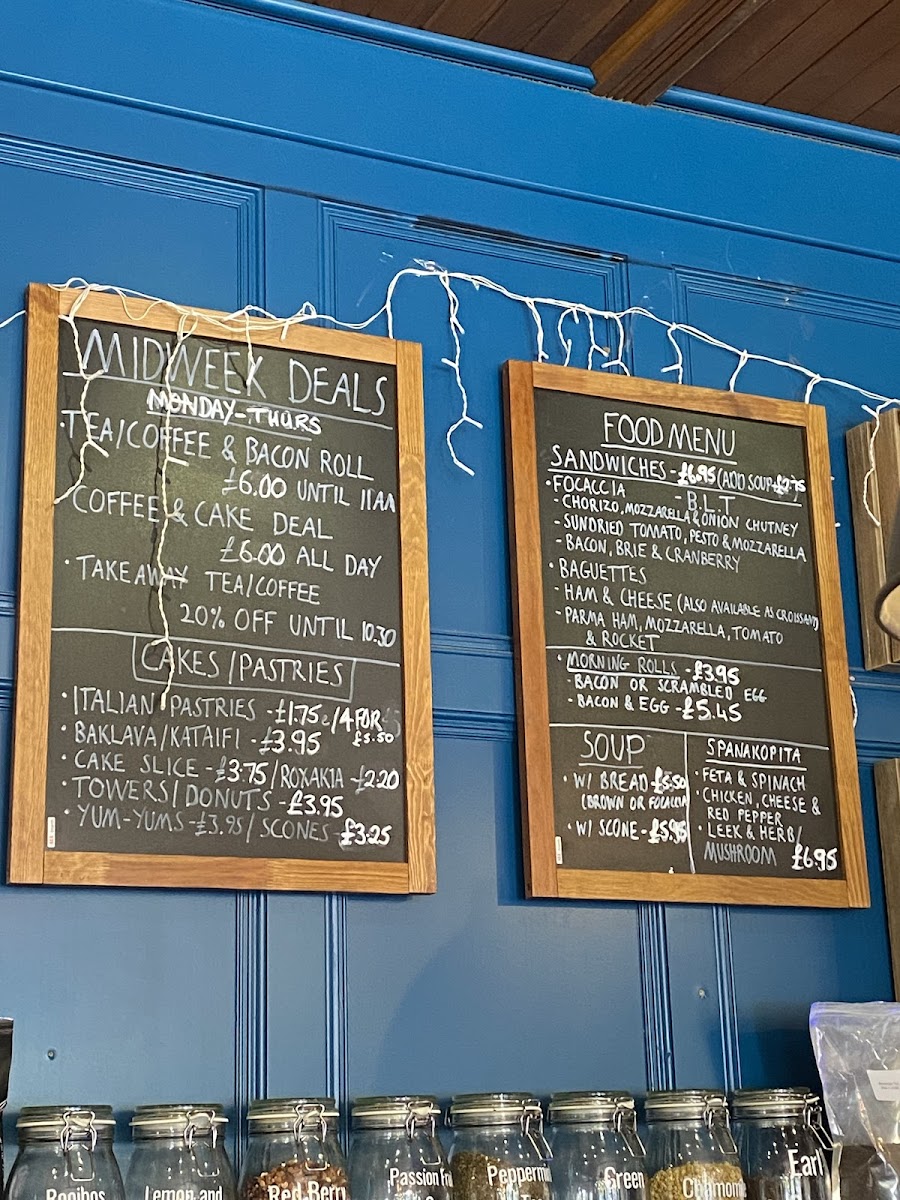 MIDWEEK DEALS
MONDAY-THURS
·TEA/COFFEE & BACON ROLL
£6.00 UNTIL 11AM
·COFFEE & CAKE DEAL
£6.00 ALL DAY
·TAKEAWAY TEA/COFFEE
20% OFF UNTIL 10.30
CAKES/PASTRIES
·ITALIAN PASTRIES -£1.75 /4 FOR
£5.50
·BAKLAVA/KATAIFI -£3.95
·CAKE SLICE -£3.75/ROXAKIA -£2.20
·TOWERS/DONUTS -£3.95
·YUM-YUMS -£3.95/SCONES -£3.25
FOOD MENU
SANDWICHES -£6.95 (ADD SOUP £2.75
·FOCACCIA - B.L.T
- CHORIZO, MOZZARELLA & ONION CHUTNEY
- SUNDRIED TOMATO, PESTO & MOZZARELLA
- BACON, BRIE & CRANBERRY
·BAGUETTES
- HAM & CHEESE (ALSO AVAILABLE AS CROISSANT)
- PARMA HAM, MOZZARELLA, TOMATO
& ROCKET
·MORNING ROLLS -£3.95
- BACON OR SCRAMBLED EGG
- BACON & EGG -£5.45
SOUP
·W/ BREAD £5.50
(BROWN OR FOCACCIA
·W/ SCONE -£5.95
SPANAKOPITA
·FETA & SPINACH
·CHICKEN, CHEESE &
RED PEPPER
·LEEK & HERB/
MUSHROOM £6.95
Rooibos
Lemon and
Red Berry
Passion Fru
Peppermin
Tea
Green
Chamomi
Earl